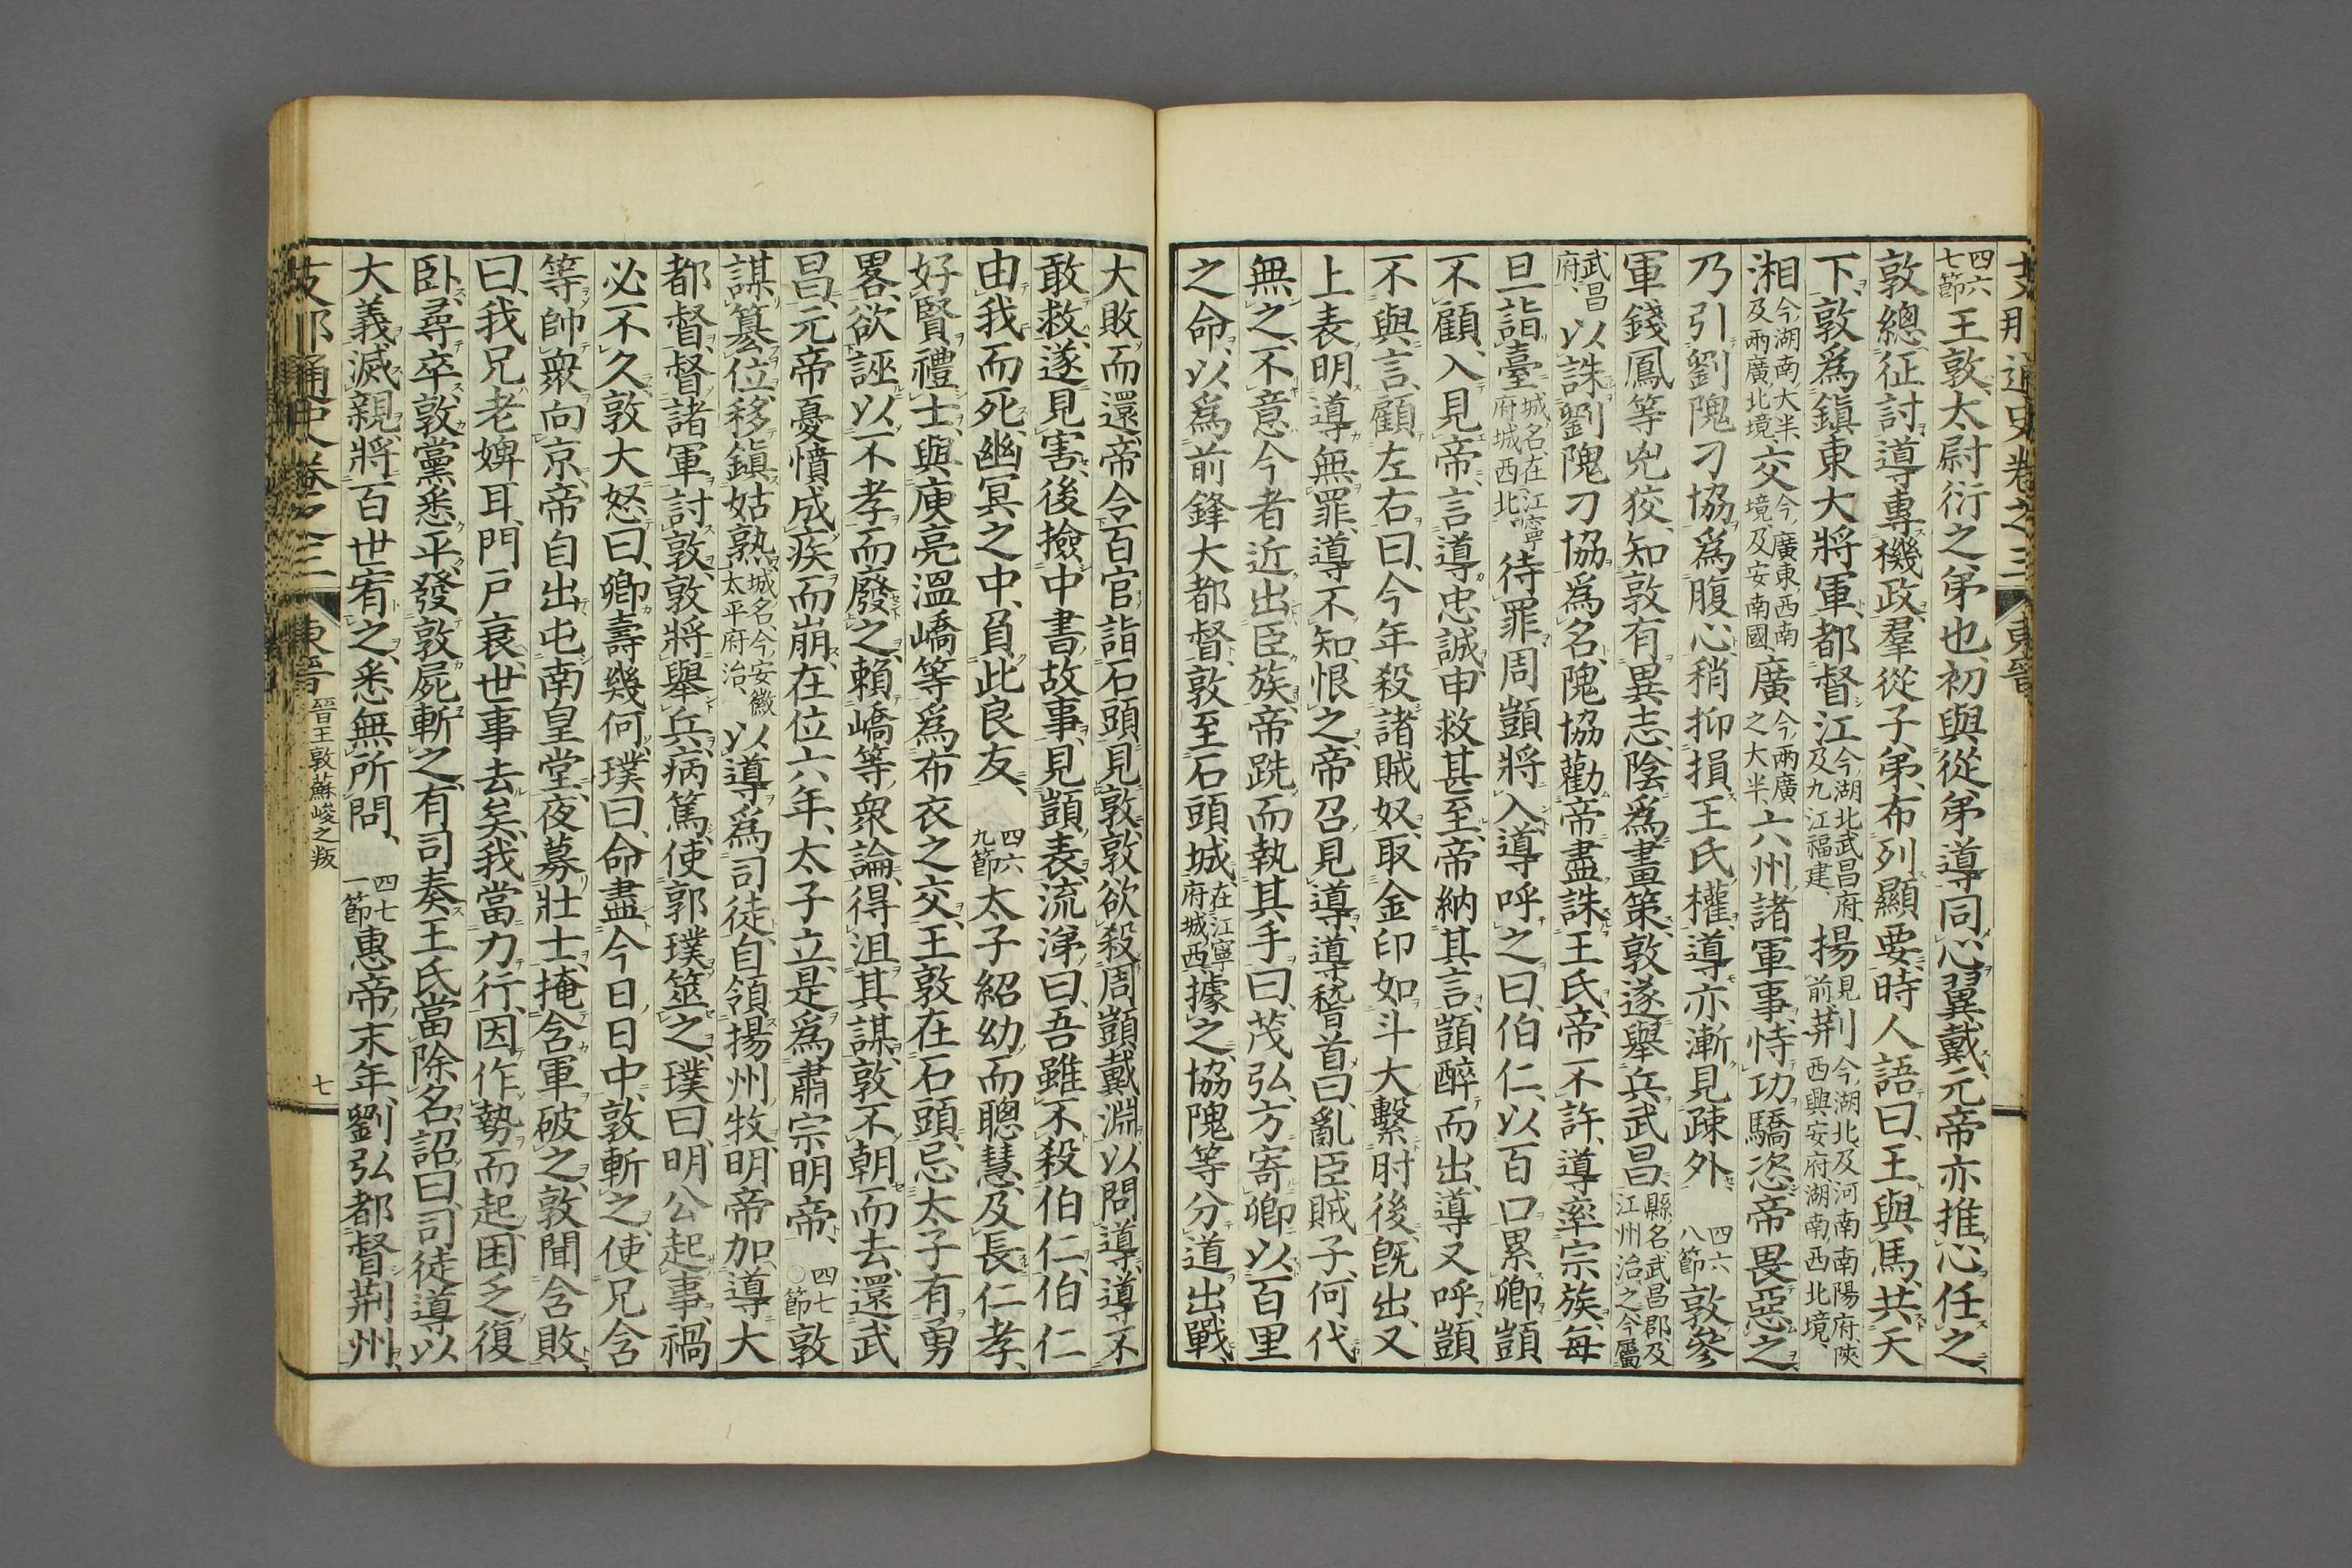 支那通史卷之三 東晉
四六七節 王敦、太尉衍之弟也、初與從弟導同心翼戴、元帝亦推心任之、
敦總征討、導專機政、羣從子弟、布列顯要、時人語曰、王與馬、共天
下、敦爲鎭東大將軍、都督江今湖北武昌府及九江福建、揚見前荆今湖北及河南南陽府、陝西興安府、湖南西北境、
湘今湖南大半、及兩廣北境、交今廣東西南境及安南國、廣今兩廣之大半、六州諸軍事、恃功驕恣、帝畏惡之、
乃引劉隗刁協爲腹心、稍抑損王氏權、導亦漸見疎外、 四六八節 敦參
軍錢鳳等兇狡、知敦有異志、陰爲畫策、敦遂舉兵武昌、縣名、武昌郡及江州治之、今屬
武昌府、以誅劉隗刁協爲名、隗協勸帝盡誅王氏、帝不許、導率宗族、每
旦詣臺城名、在江寧府城西北、待罪、周顗將入、導呼之曰、伯仁、以百口累卿、顗
不顧、入見帝、言導忠誠、申救甚至、帝納其言、顗醉而出、導又呼、顗
不與言、顧左右曰、今年殺諸賊奴、取金印如斗大、繫肘後、旣出、又
上表明導無罪、導不知、恨之、帝召見導、導稽首曰、亂臣賊子、何代
無之、不意今者近出臣族、帝跣而執其手曰、茂弘、方寄卿以百里
之命、以爲前鋒大都督、敦至石頭城、在江寧府城西據之、協隗等分道出戰、
大敗而還、帝令百官詣石頭見敦、敦欲殺周顗戴淵、以問導、導不
敢救、遂見害、後撿中書故事、見顗表、流涕曰、吾雖不殺伯仁、伯仁
由我而死、幽冥之中、負此良友、 四六九節 太子紹幼而聰慧、及長仁孝、
好賢禮士、與庾亮溫嶠等爲布衣之交、王敦在石頭、忌太子有勇
畧、欲誣以不孝而廢之、賴嶠等衆論、得沮其謀、敦不朝而去、還武
昌、元帝憂憤成疾而崩、在位六年、太子立、是爲肅宗明帝、 四七〇節 敦
謀簒位、移鎭姑孰、城名、今安徽太平府治、以導爲司徒、自領揚州牧、明帝加導大
都督、督諸軍討敦、敦將舉兵、病篤、使郭璞筮之、璞曰、明公起事、禍
必不久、敦大怒曰、卿壽幾何、璞曰、命盡今日日中、敦斬之、使兄含
等帥衆向京、帝自出屯南皇堂、夜募壯士、掩含軍破之、敦聞含敗、
曰、我兄老婢耳、門戸衰、世事去矣、我當力行、因作勢而起、困乏復
臥、尋卒、敦黨悉平、發敦屍斬之、有司奏、王氏當除名、詔曰、司徒導以
大義滅親、將百世宥之、悉無所問、 四七一節 惠帝末年、劉弘都督荆州、
支那通史卷之三 東晉 晉王敦蘇峻之叛 七